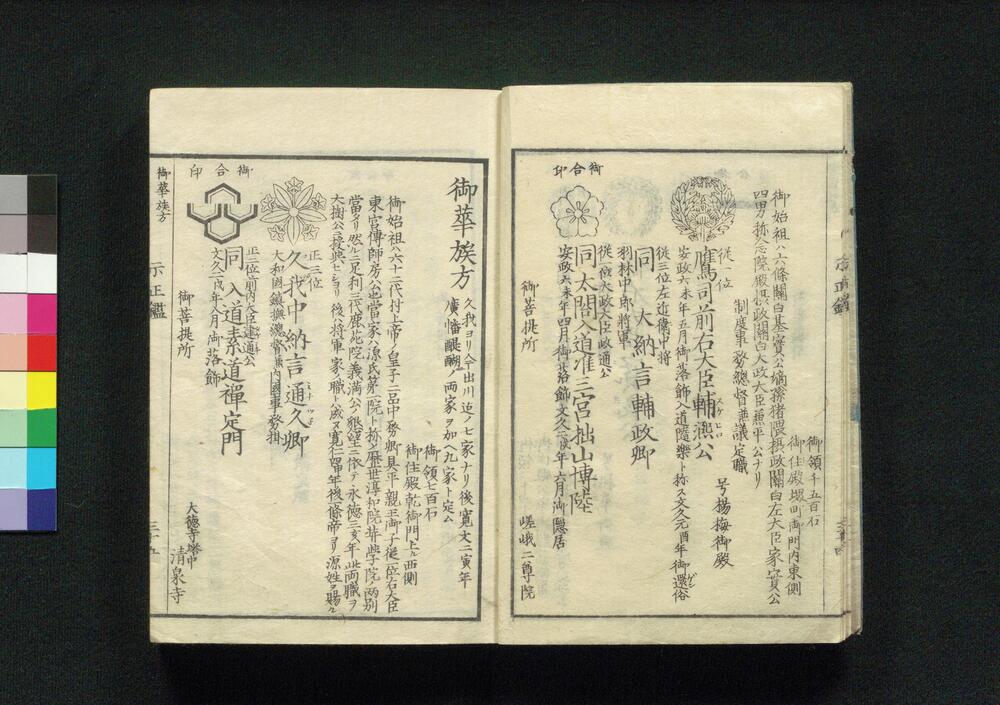 御領千五百石
御住殿堺町御門内東側
御始祖ハ六條關白基實公嫡孫猪隈摂政關白左大臣家實公
四男称念院殿摂政關白太政大臣兼平公ナリ
制度事務總督兼議定職
号揚梅御殿
従一位
鷹司前右大臣輔凞公
スケヒロ
安政六未年五月御落飾入道隨樂ト称ス文久元酉年御還俗
ゲンゾク
従三位左近衞中将
同大納言輔政卿
羽林中郎将軍
従一位太政大臣政通公
同太閤入道准三宮拙山博陸
安政六未年四月御落飾文久八戌年六月御隠居
御合印
御菩提所
嵯峨二尊院
御華族方
久我ヨリ今出川迄ノ七家ナリ後寛文二寅年
廣幡醍醐ノ両家ヲ加ヘ九家ト定ム
御領七百石
御住殿乾御門上ル西側
御始祖ハ六十二代村上帝ノ皇子二品中務卿具平親王御子従一位右大臣
東宮傳師房公也當家ハ源氏第一院ト称ス歴世淳和院奨學院両別
當タリ然ルニ足利三代鹿苑院義満公ノ懇望ニ依テ永徳三亥年此両職ヲ
大樹公ニ授與セシヨリ後ハ将軍家ノ職ト成ス寛仁四年後條帝ヨリ源姓ヲ賜ル
正三位
久我中納言通久卿
ミチツネ
大和国鎮撫總督兼内國事務掛
正二位前内大臣建通公
同入道素道禅定門
文久二戌年八月御落飾
御合印
御菩提所
大徳寺塔中
清泉寺
御華族方
示正鑑
三十五